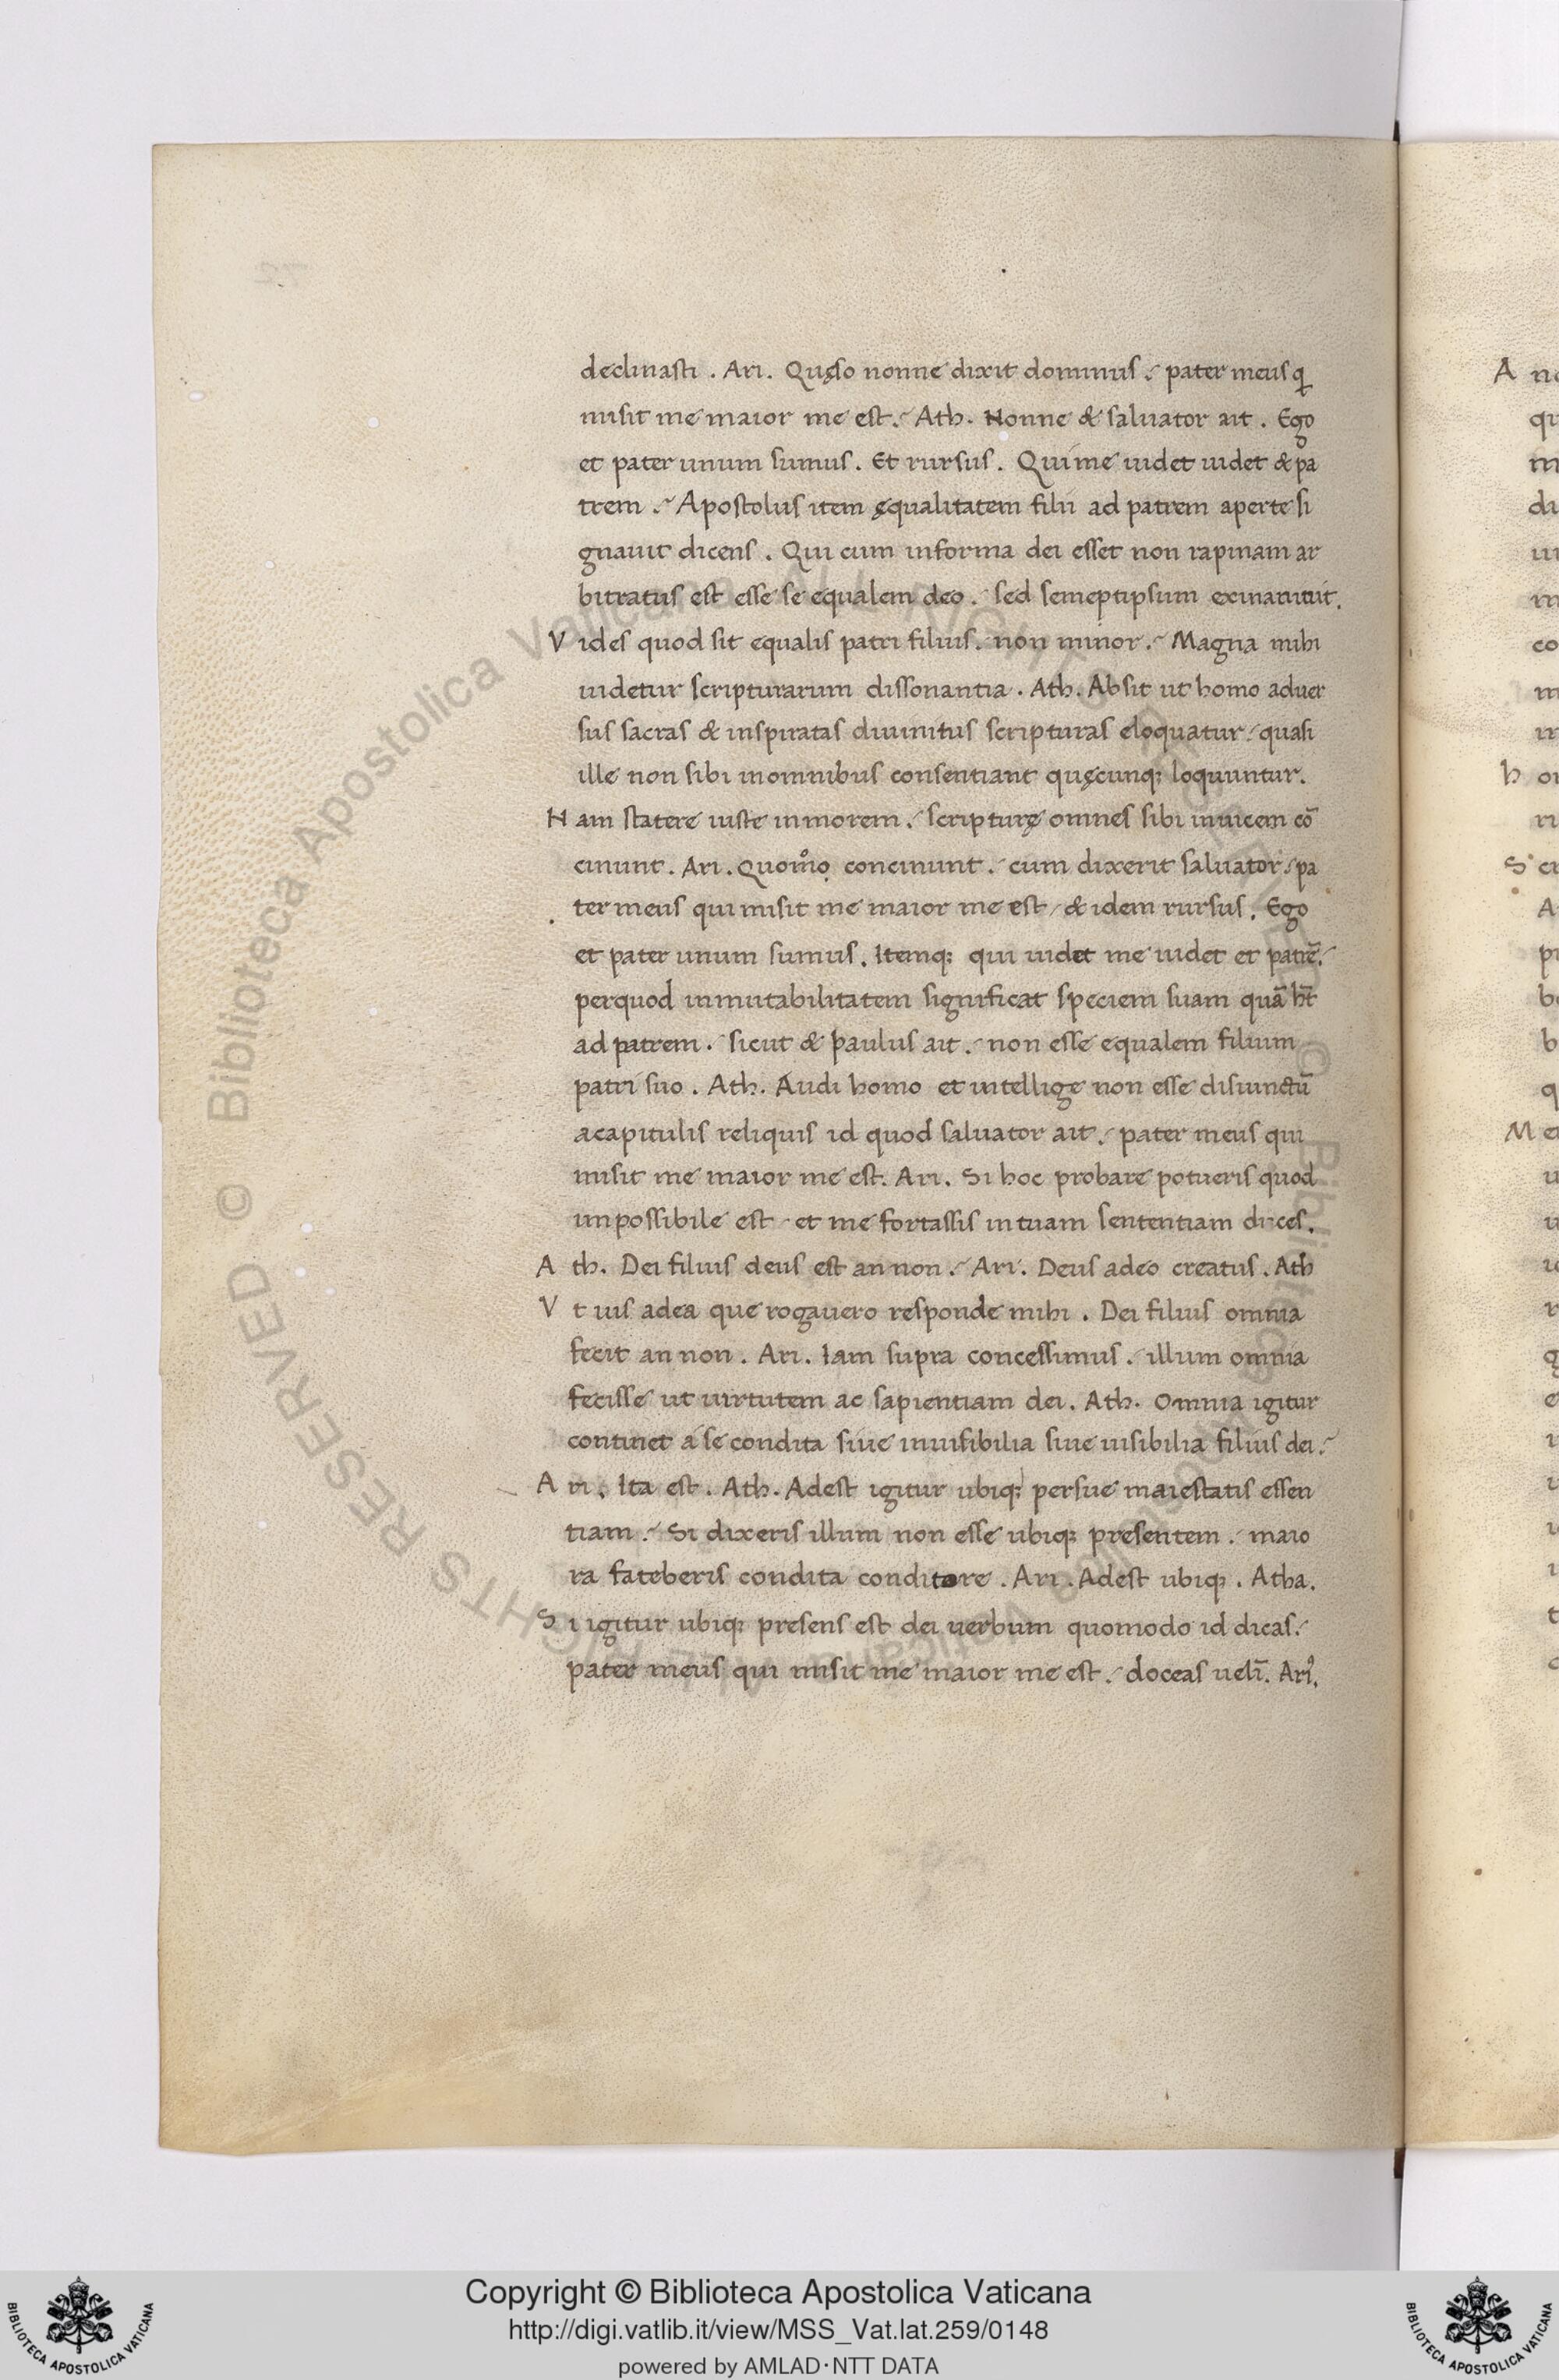 declinasti . Ari. Quęso nonne dixit dominus. pater meus q
misit me maior me est. Ath. Nonne & saluator ait . Ego
et pater unum sumus . Et rursus . Qui me uidet uidet & pa
trem . Apostolus item ęqualitatem filii ad patrem aperte si
gnauit dicens . Qui cum informa dei esset non rapinam ar
bitratus est esse se equalem deo . sed semeptipsum exinaniuit.
V ides quod sit equalis patri filius . non minor . Magna mihi
uidetur scripturarum dissonantia . Ath. Absit ut homo aduer
sus sacras & inspiratas diuinitus scripturas eloquatur . quasi
ille non sibi inomnibus consentiant quęcunq; loquuntur.
N am statere iuste inmorem . scripturę omnes sibi inuicem cō
cinunt . Ari . Quomo concinunt . cum dixerit saluator . pa
ter meus qui misit me maior me est / & idem rursus . Ego
et pater unum sumus . Itemq; qui uidet me uidet et patrē.
perquod inmutabilitatem significat speciem suam quā ht̄
ad patrem . sicut & paulus ait . non esse equalem filium
patri suo . Ath. Audi homo et intellige non esse disiunctū
acapitulis reliquis id quod saluator ait . pater meus qui
misit me maior me est. Ari. Si hoc probare potueris quod
impossibile est et me fortassis intuam sententiam dices.
A th. Dei filius deus est annon . Ari. Deus adeo creatus . Ath
V t uis adea que rogauero responde mihi . Dei filius omnia
fecit an non . Ari. Iam supra concessimus . illum omnia
fecisse ut uirtutem ac sapientiam dei . Ath. Omnia igitur
continet á se condita siue inuisibilia siue uisibilia filius dei.
A ri . Ita est . Ath. Adest igitur ubiq; persue maiestatis essen
tiam . Si dixeris illum non esse ubiq; presentem . maio
ra fateberis condita conditore . Ari . Adest ubiq; . Atha.
S i igitur ubiq; presens est dei uerbum quomodo id dicas.
pater meus qui misit me maior me est . doceas uelī. Ari.
Copyright © Biblioteca Apostolica Vaticana
http://digi.vatlib.it/view/MSS_Vat.lat.259/0148
powered by AMLAD·NTT DATA